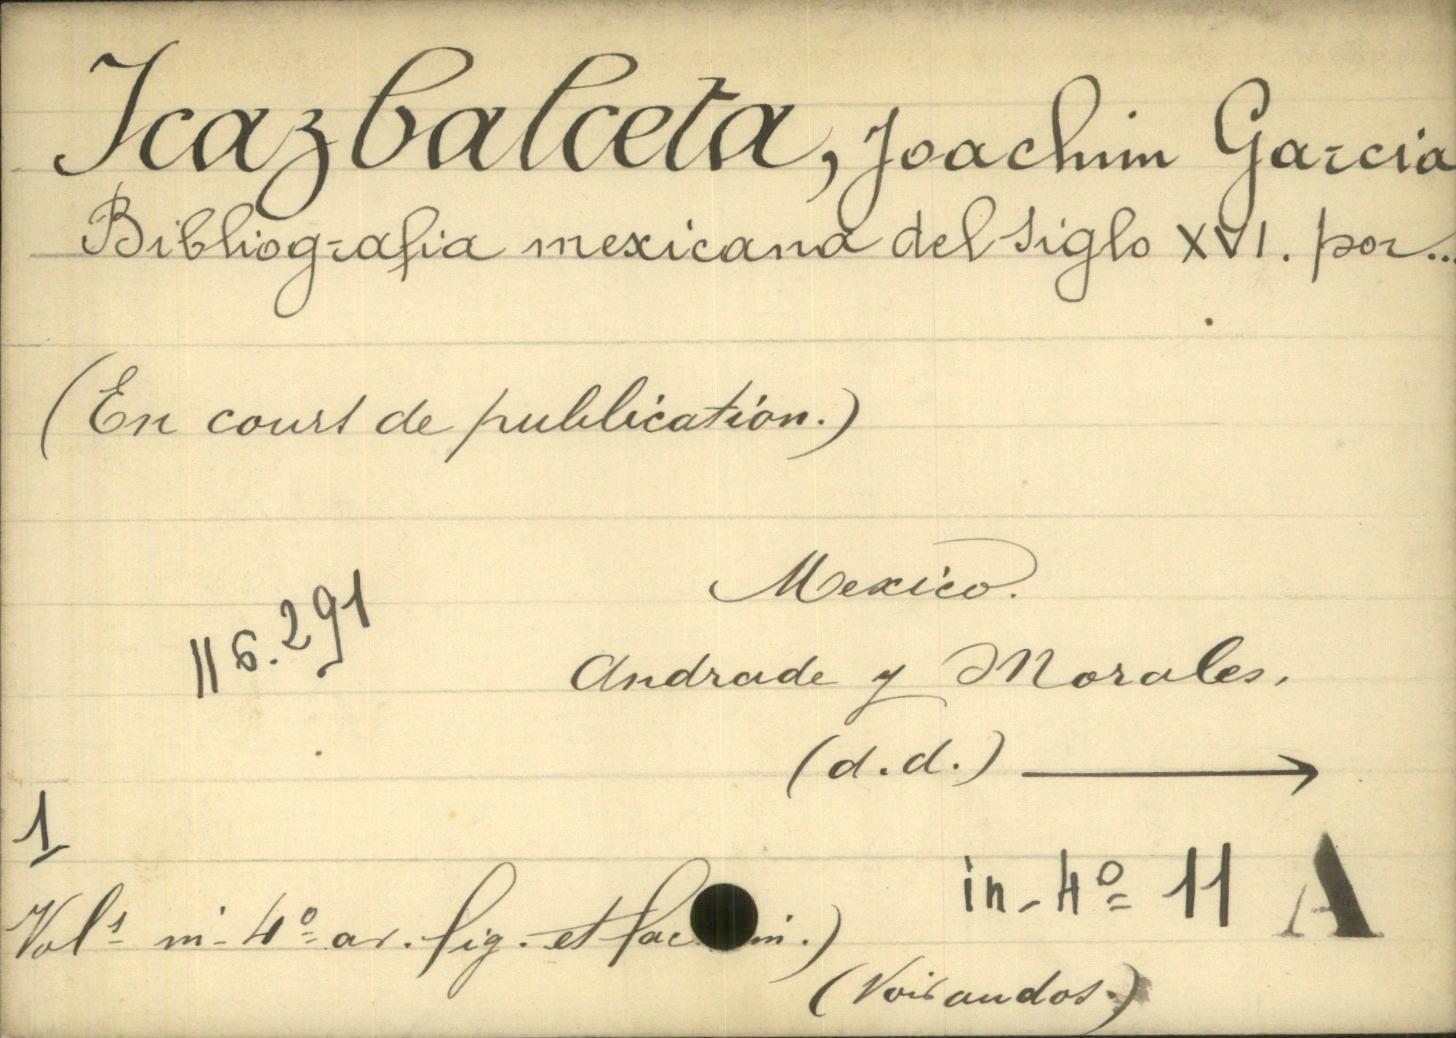 Icazbalceta, Joachim Garcia
Bibliografia mexicana del siglo XVI. por...
(En cours de publication.)
Mexico.
116.291
Andrade y Morales.
(d.d.)
1
Vols in-4º av. fig. et fac
in-4º 11 A
(Voir au dos.)